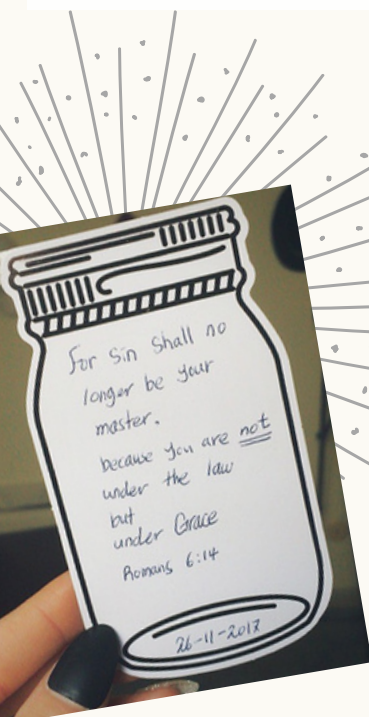 For Sin Shall no
longer be your
master.
because you are not
under the law
but
under Grace
Romans 6:14
26-11-2017